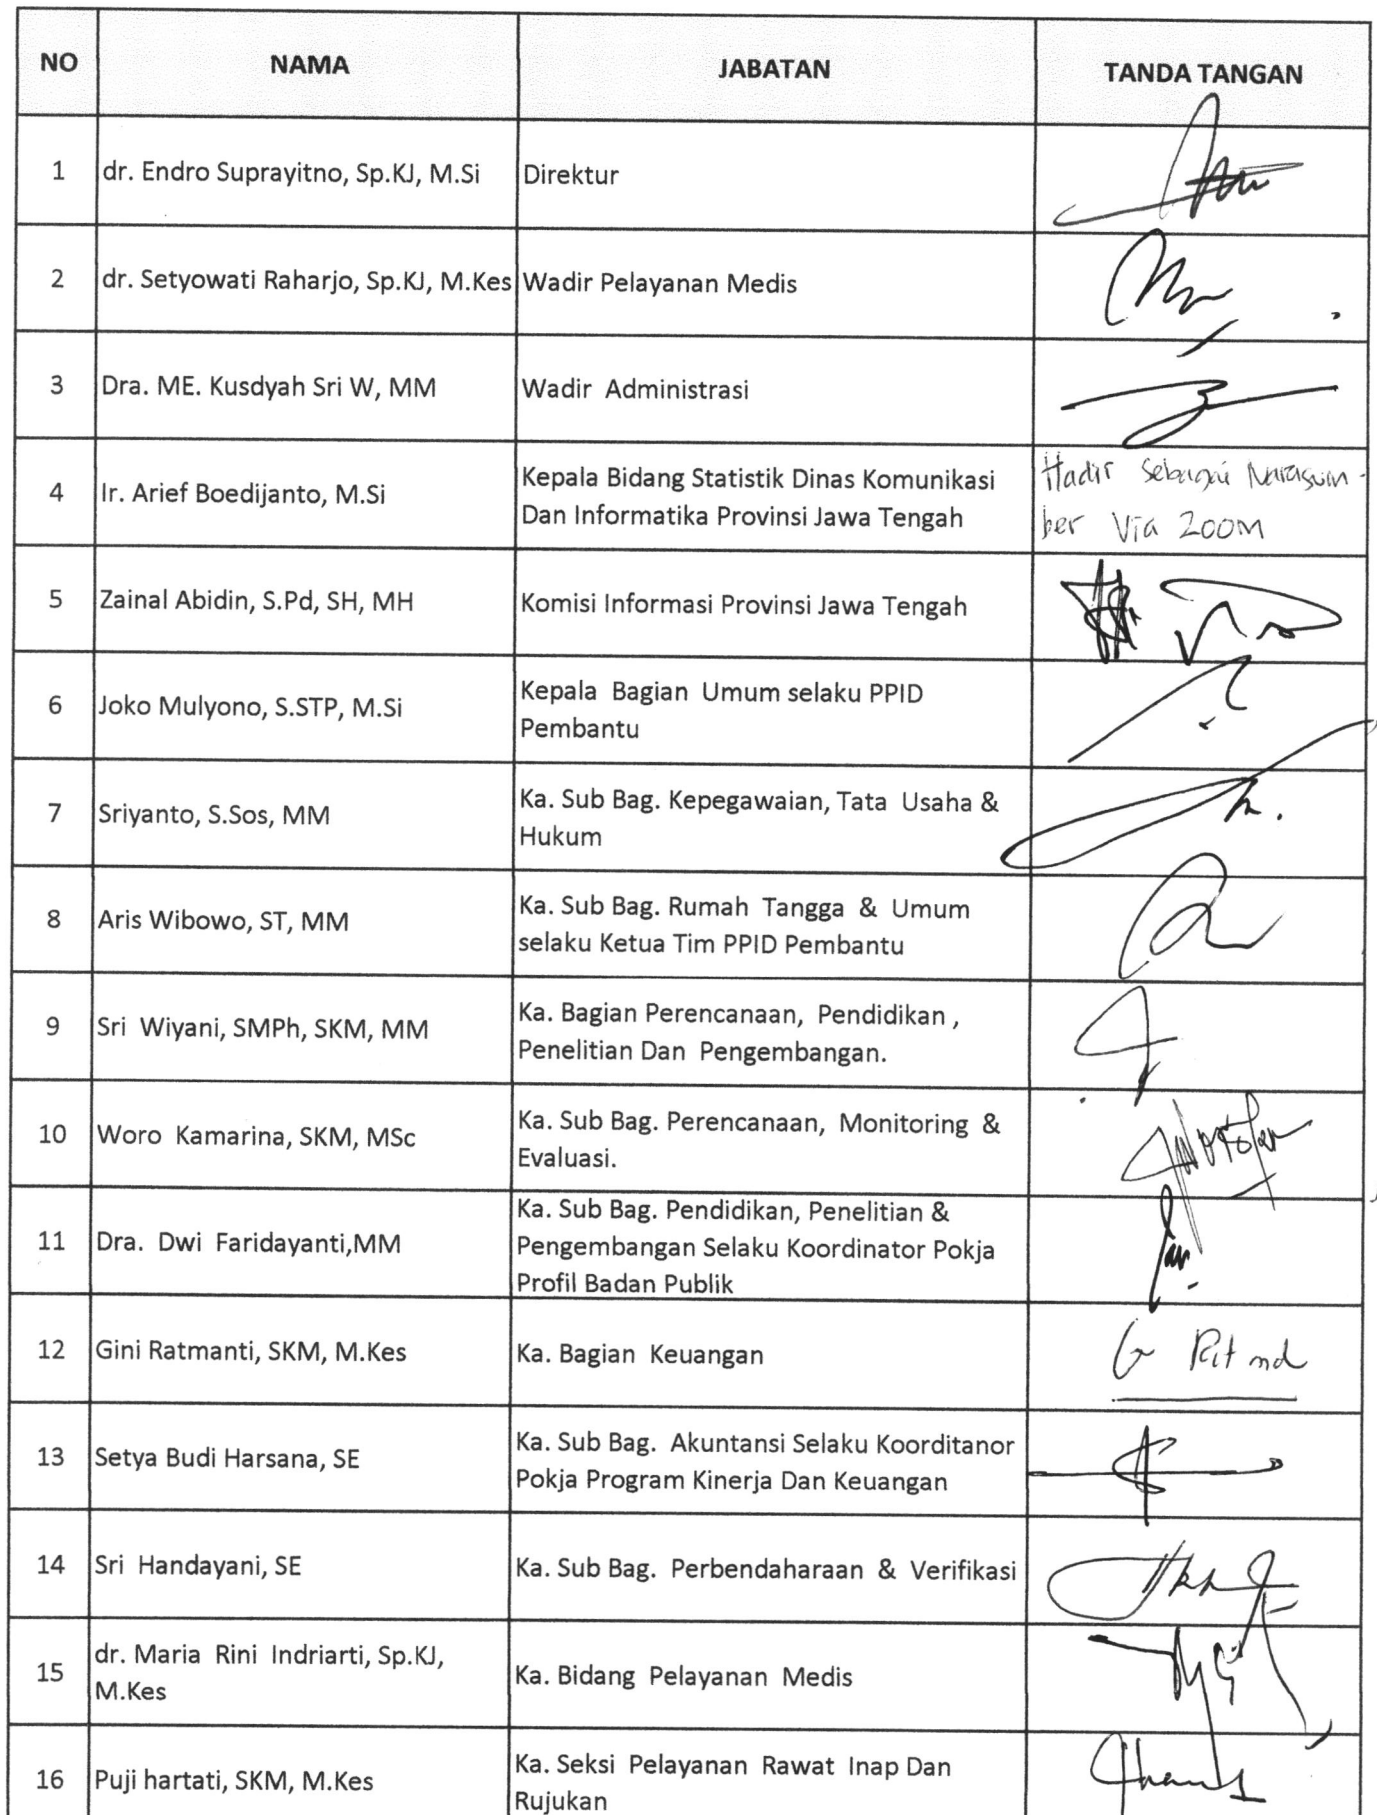 NO NAMA JABATAN TANDA TANGAN
1 dr. Endro Suprayitno, Sp.KJ, M.Si Direktur
2 dr. Setyowati Raharjo, Sp.KJ, M.Kes Wadir Pelayanan Medis
3 Dra. ME. Kusdyah Sri W, MM Wadir Administrasi
4 Ir. Arief Boedijanto, M.Si Kepala Bidang Statistik Dinas Komunikasi
Dan Informatika Provinsi Jawa Tengah
Hadir sebagai Narasum-
ber Via Zoom
5 Zainal Abidin, S.Pd, SH, MH Komisi Informasi Provinsi Jawa Tengah
6 Joko Mulyono, S.STP, M.Si Kepala Bagian Umum selaku PPID
Pembantu
7 Sriyanto, S.Sos, MM Ka. Sub Bag. Kepegawaian, Tata Usaha &
Hukum
8 Aris Wibowo, ST, MM Ka. Sub Bag. Rumah Tangga & Umum
selaku Ketua Tim PPID Pembantu
9 Sri Wiyani, SMPh, SKM, MM Ka. Bagian Perencanaan, Pendidikan ,
Penelitian Dan Pengembangan.
10 Woro Kamarina, SKM, MSc Ka. Sub Bag. Perencanaan, Monitoring &
Evaluasi.
11 Dra. Dwi Faridayanti,MM Ka. Sub Bag. Pendidikan, Penelitian &
Pengembangan Selaku Koordinator Pokja
Profil Badan Publik
12 Gini Ratmanti, SKM, M.Kes Ka. Bagian Keuangan
13 Setya Budi Harsana, SE Ka. Sub Bag. Akuntansi Selaku Koorditanor
Pokja Program Kinerja Dan Keuangan
14 Sri Handayani, SE Ka. Sub Bag. Perbendaharaan & Verifikasi
15 dr. Maria Rini Indriarti, Sp.KJ,
M.Kes Ka. Bidang Pelayanan Medis
16 Puji hartati, SKM, M.Kes Ka. Seksi Pelayanan Rawat Inap Dan
Rujukan